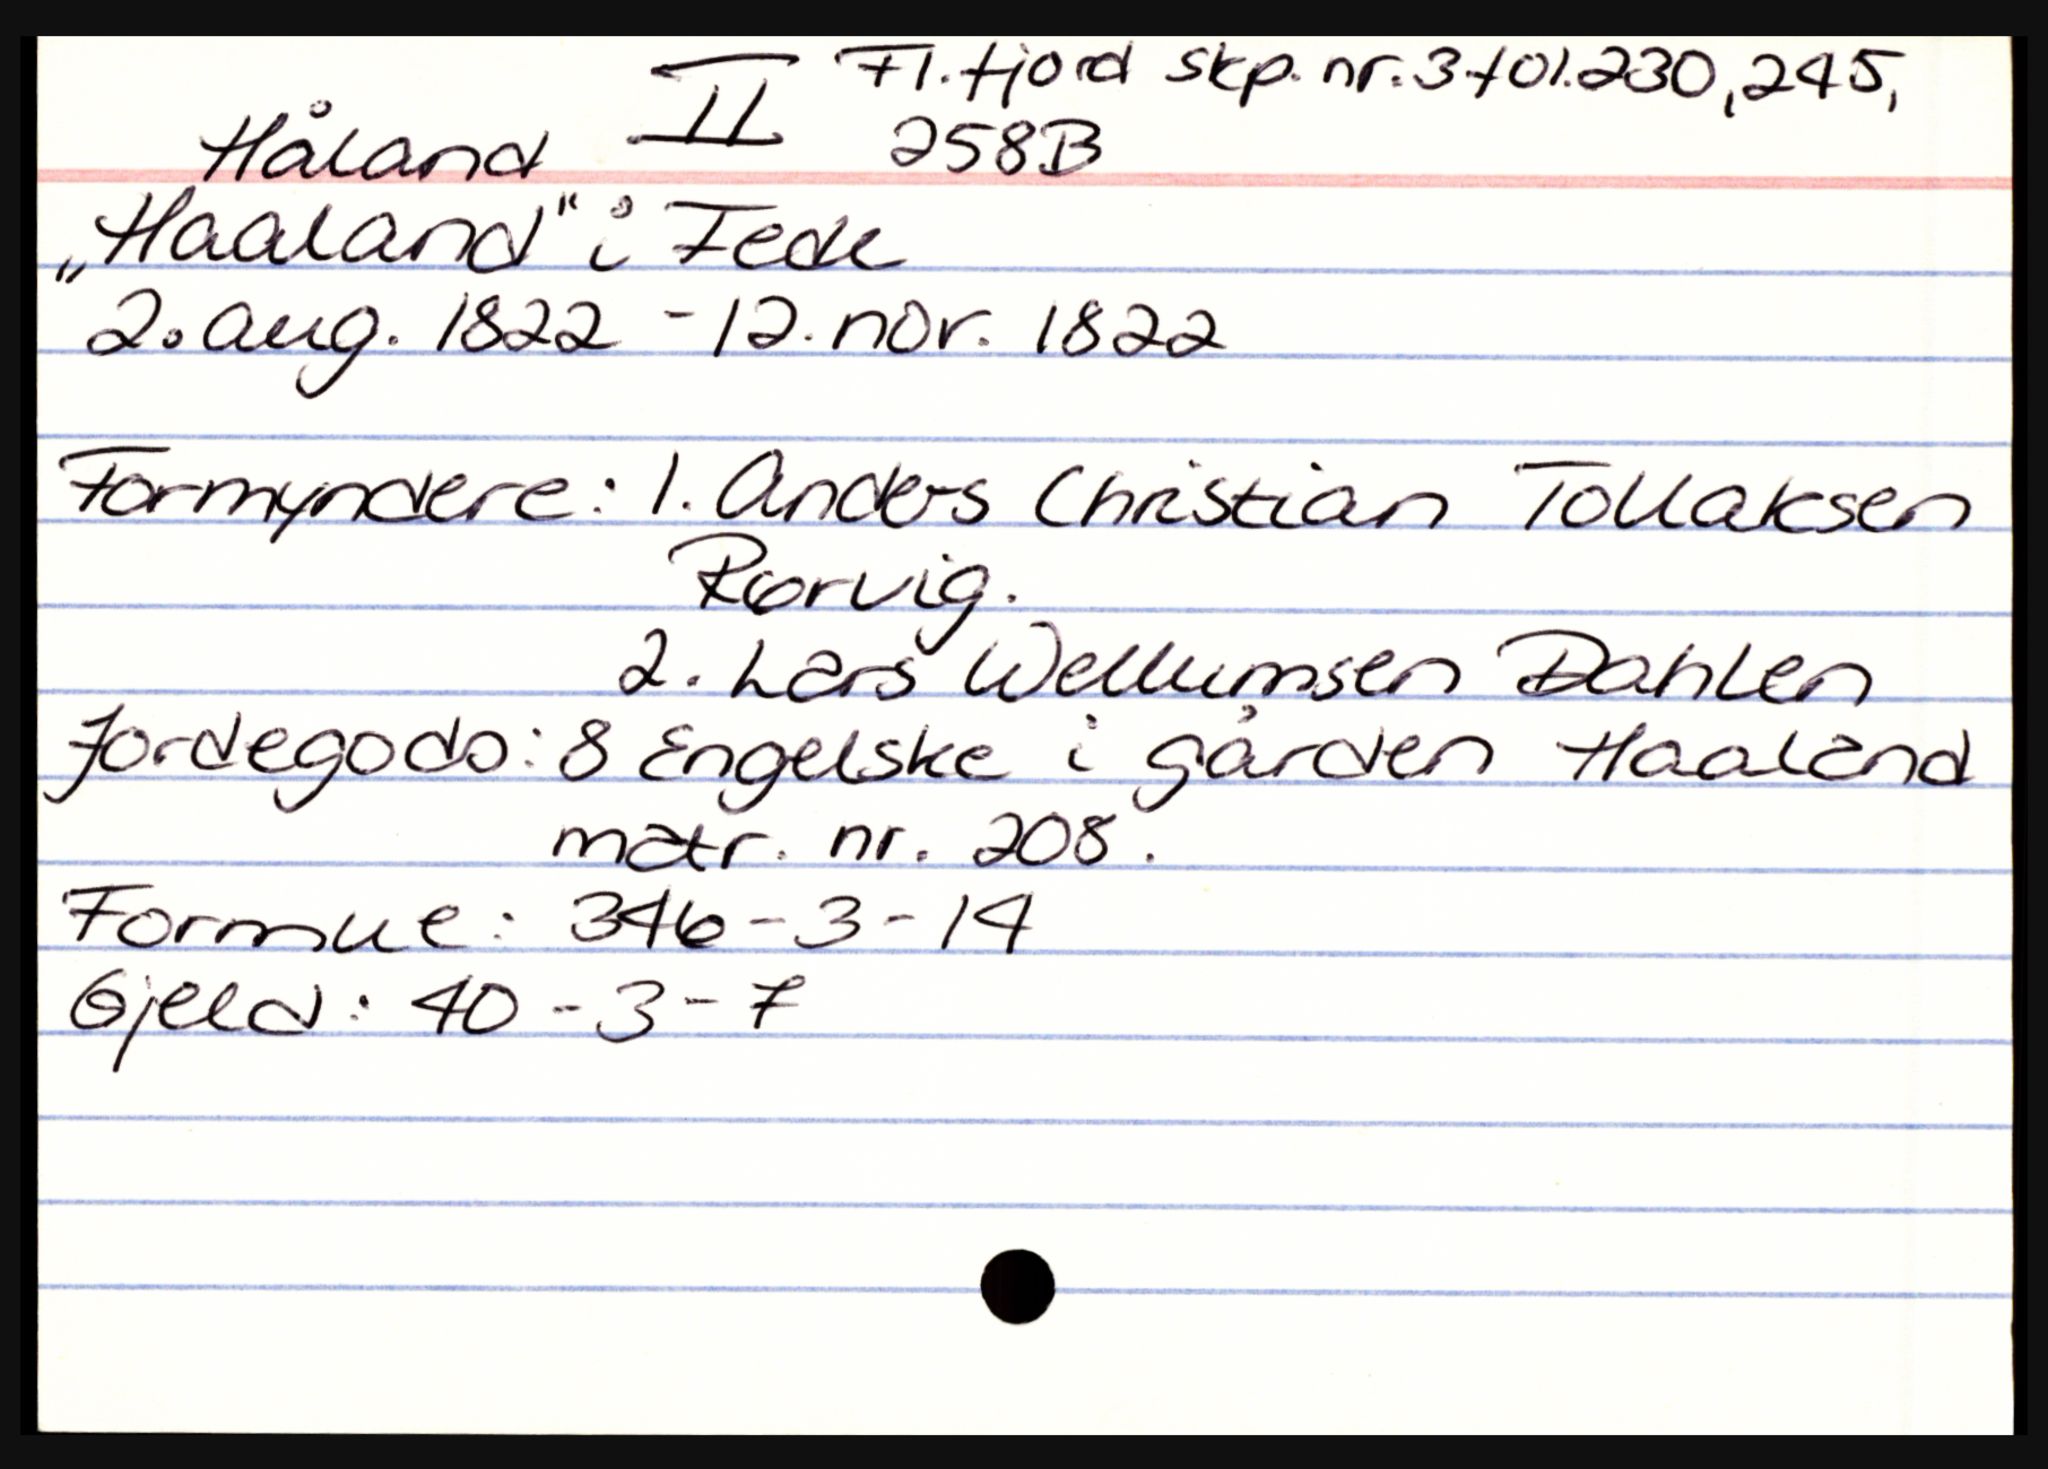 Håland II Fl.fjord skp.nr.3 fol.230,245,
258B
„Haaland" i Fede
2. aug. 1822 - 12. nov. 1822
Formyndere: 1. Anders Christian Tollaksen
Rørvig.
2. Lars Wellumsen Dahlen
Jordegods: 8 Engelske i gården Haaland
matr. nr. 208.
Formue: 346-3-14
Gjeld: 40-3-7